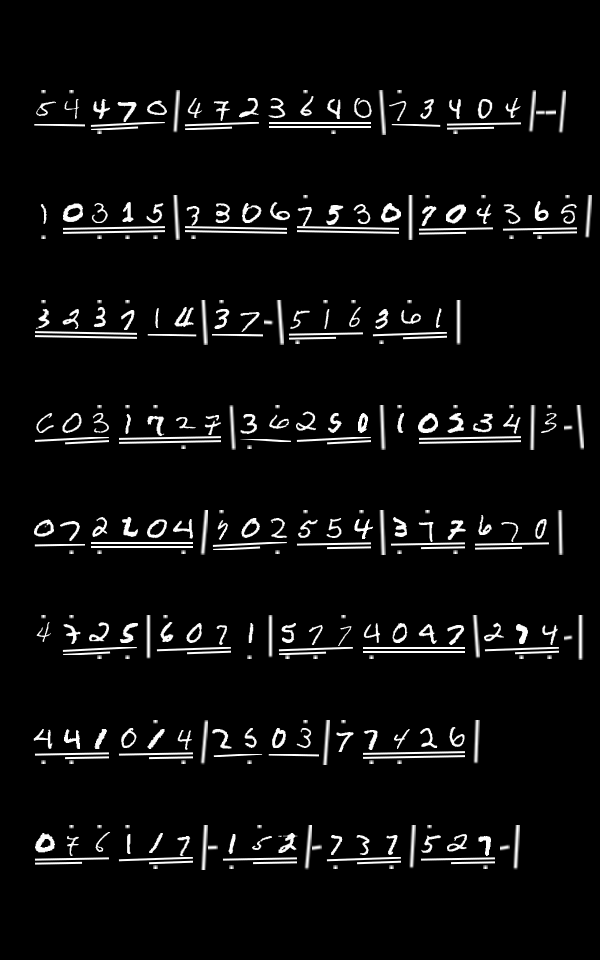 5 4 4 7 0 | 4 7 2 3 6 4 0 | 7 3 4 0 4 | - - |
1 0 3 1 5 | 3 3 0 6 7 5 3 0 | 7 0 4 3 6 5 |
3 2 3 7 1 4 | 3 7 - | 5 1 6 3 6 1 |
6 0 3 1 7 2 7 | 3 6 2 5 0 | 1 0 5 3 4 | 3 - |
0 7 2 2 0 4 | 5 0 2 5 5 4 | 3 7 7 6 7 0 |
4 7 2 5 | 6 0 7 1 | 5 7 7 4 0 4 7 | 2 7 4 - |
4 4 1 0 1 4 | 2 5 0 3 | 7 7 4 2 6 |
0 7 6 1 1 7 | - 1 5 2 | - 7 3 7 | 5 2 7 - |